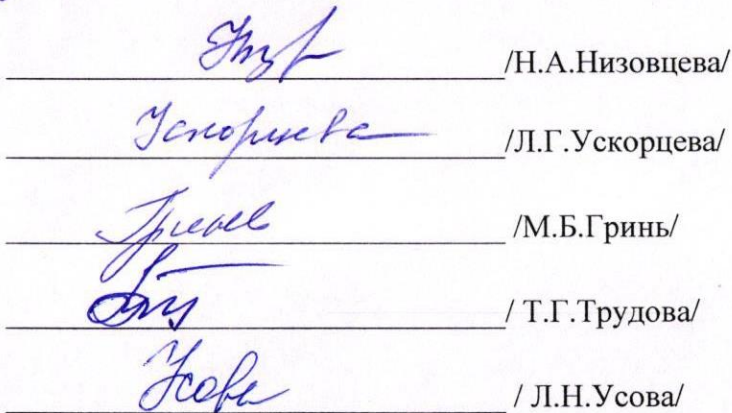 /Н.А.Низовцева/
Ускорцева /Л.Г.Ускорцева/
Гринь /М.Б.Гринь/
/ Т.Г.Трудова/
Усова / Л.Н.Усова/